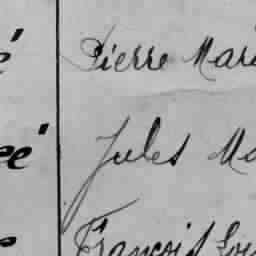 é Pierre Mar
ée Jules Ma
François Lou